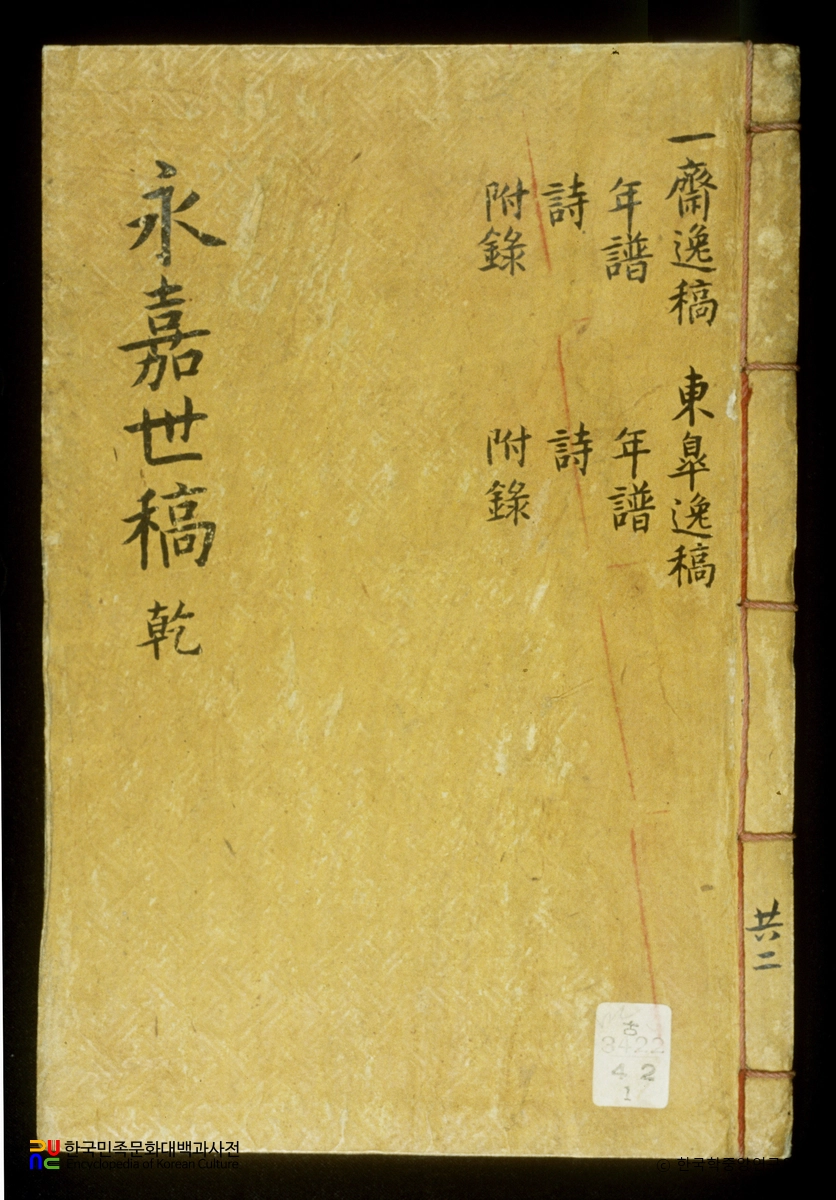 一齋逸稿 東皐逸稿
年譜 年譜
詩 詩
附錄 附錄
永嘉世稿 乾
共二
古
8422
4 2
1
한국민족문화대백과사전
Encyclopedia of Korean Culture